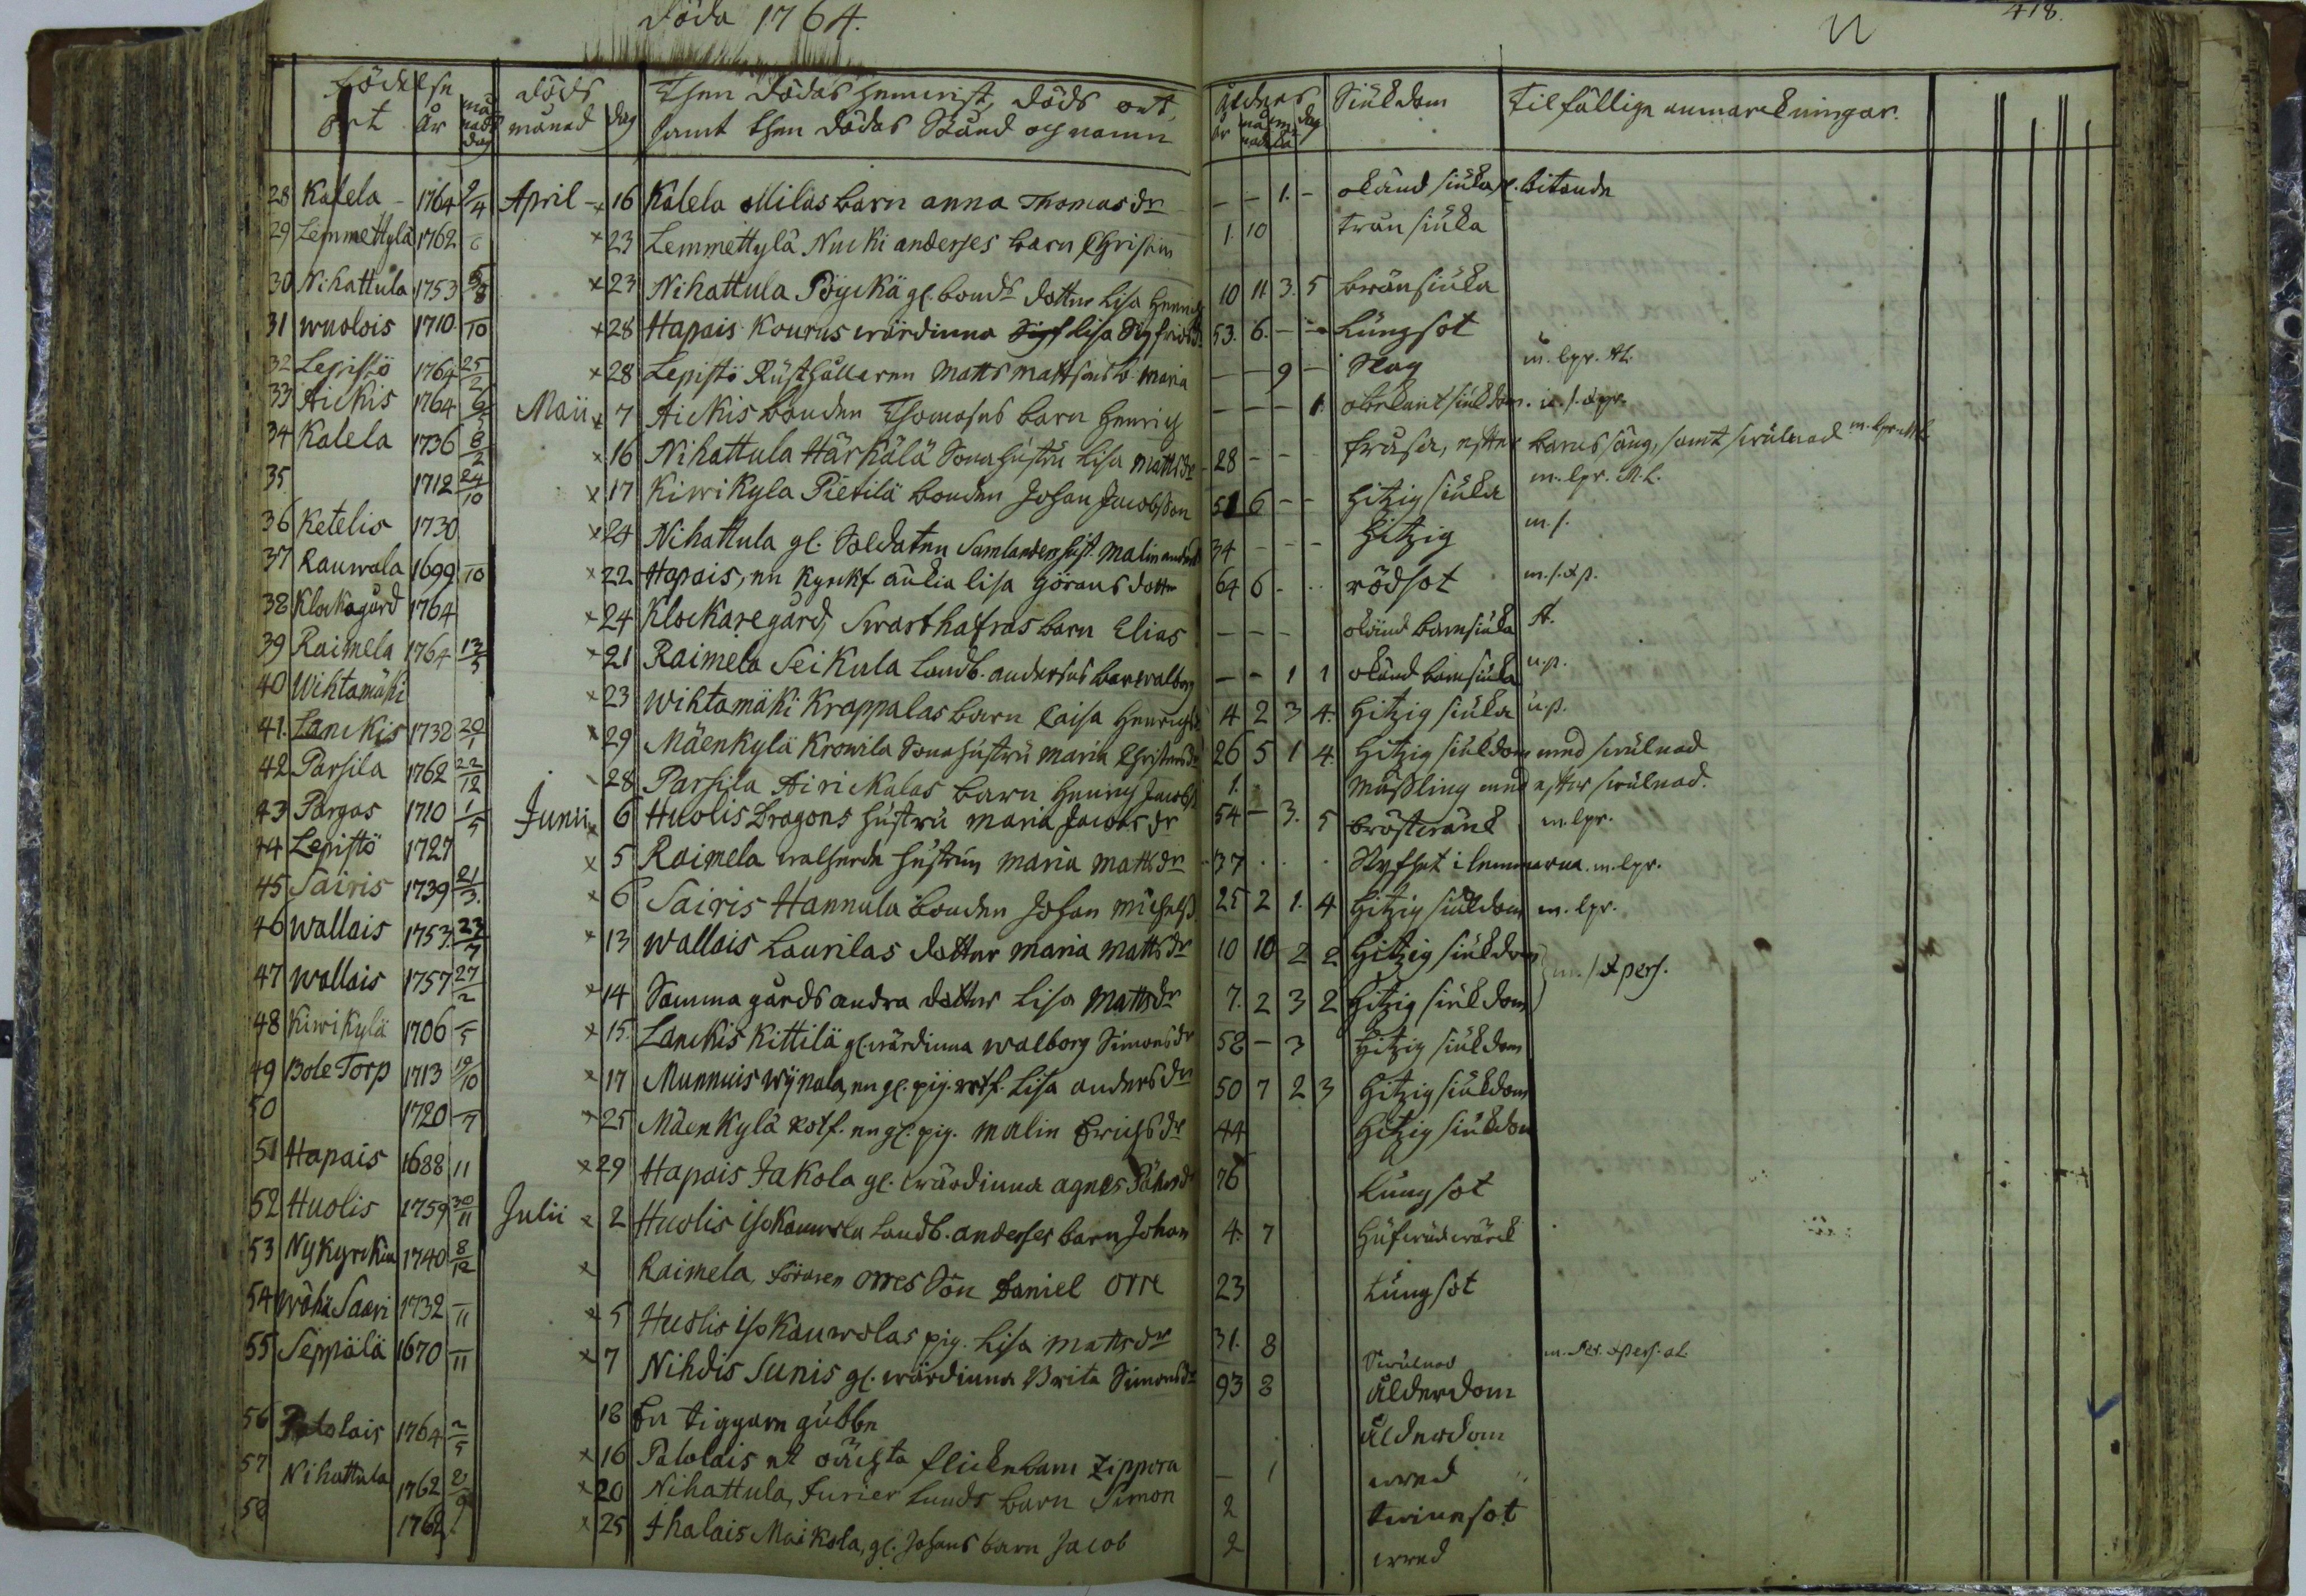 Döda 1764.
418.
Födelse ort år månads dag döds månad dag Then dödas hemvist, döds ort, samt then dödas Stånd och namn ålders år månad dag Siukdom Tilfällige anmärckningar.
28 Kalela - 1764 9/4 April - x 16 Kalela Millas barn anna Thomas dr - - 1. - okänd siuka bitande
29 Lemmettylä 1762 x 23 Lemmettylä Nucki anderses barn Christin 1. 10 trånsiuka
30 Nihattula 1753 5/8 x 23 Nihattula Pöyckä gl. bonds dotter Lisa Henrichs 10 11 3. 5 brånsiuka
31 Wuolois 1710 10 x 28 Hapais Kourus wärdinna Lisa Sigfrids dr 53. 6. - - Lungsot
32 Lepistö 1764 25/2 x 28 Lepistö Rusthållaren Matts Mattsons b. Maria - - 9 - Slag
33 Aickis 1764 6/5 Maii x 7 Aickis bonden Thomases barn Henrich - - - 1. obekant siukdom.
34 Kalela 1736 8/2 x 16 Nihattula Härkälä Sonahustru Lisa Mattsdr 28 - - frusa, efter barnsäng, samt swulnad
35 1712 24/10 x 17 Kiwikyla Pietilä bonden Johan Jacobsson 51 6 - - hitzig siuka m. lpr. Al.
36 Ketelis 1730 x 24 Nihattula gl. Soldaten Samlanders hust. Malin anders 34 - - - hitzig m. s.
37 Rauwola 1699 10 x 22 Hapais, en Kyrckf änkia lisa Görans dotter 64 6 - rödsot
38 Klockagård 1764 x 24 Klockaregård, Swarthafras barn Elias - - - okänd barnsiuka
39 Raimela 1764 13/5 x 21 Raimela Seikula landb. anderses barn walborg - - 1 1 okänd barnsiuka
40 Wihtamäki x 23 Wihtamäki Krappalas barn Caisa Henrichs 4 2 3 4. hitzig siuka
41. Lanckis 1738 20/1 x 29 Mäenkylä Krowila Sonahustru Maria Christers dr 26 5 1 4. hitzig siukdom med swulnad
42 Parsila 1762 22/12 28 Parsila Airickalas barn Henrich Jacobs 1. Mässling med efter swulnad.
43 Pargas 1710 1/5 Junii x 6 Huolis Dragons hustru Maria Jacobs dr 54 - 3. 5 bröstwärck m. lpr.
44 Lepistö 1727 x 5 Raimela walherda hustrun Maria Mattsdr 37 Styfhet i lemmarna. m. lpr.
45 Sairis 1739 21/3. x 6 Sairis Hannula bonden Johan Michels 25 2 1. 4 hitzig siukdom m. lpr.
46 Wallais 1753. 23/7 x 13 Wallais Laurilas dotter Maria Mattsdr 10 10 2 2 hitzig siukdom
47 Wallais 1757 27/2 x 14 Samma gårds andra dotter Lisa Mattsdr 7. 2 3 2 hitzig siukdom
48 Kiwikylä 1706 5 x 15. Lanckis Kittilä gl. wärdinna Walborg Simonsdr 58 - 3 hitzig siukdom
49 Bole Torp 1713 19/10 x 17 Munnuis Wijnala, en gl. pig. Lisa andersdr 50 7 2 3 hitzig siukdom
50 1720 x 25 Mäenkylä en gl. pig. Malin Erichsdr 44 hitzig siukdom
51 Hapais 1688 11 x 29 Hapais Jakola gl. wärdinna agnes 76 Lungsot
52 Huolis 1759 30/11 Julii x 2 Huolis isokauwola landb. anderses barn Johan 4. 7 hufwudwärck
53 Nykyrckia 1740 8/12 x Raimela, Orres Son Daniel Orre 23 Lungsot
54 Wähä Saari 1732 11 x 5 Huolis isokauwolas pig. Lisa Mattsdr 31. 8 Swulnad
55 Seppälä 1670 11 x 7 Nihdis Sunis gl. wärdinna Brita Simonsdr 93 8 ålderdom
18 En tiggare gubbe ålderdom
56 Palolais 1764 2/5 x 16 Palolais et oächta flickebarn Zippora - 1 wred
57 Nihattula 1762 2/9 x 20 Nihattula, Furier Lunds barn Simon 2 twinsot
58 1762 x 25 Ihalais Maikola, gl. Johans barn Jacob 2 wred